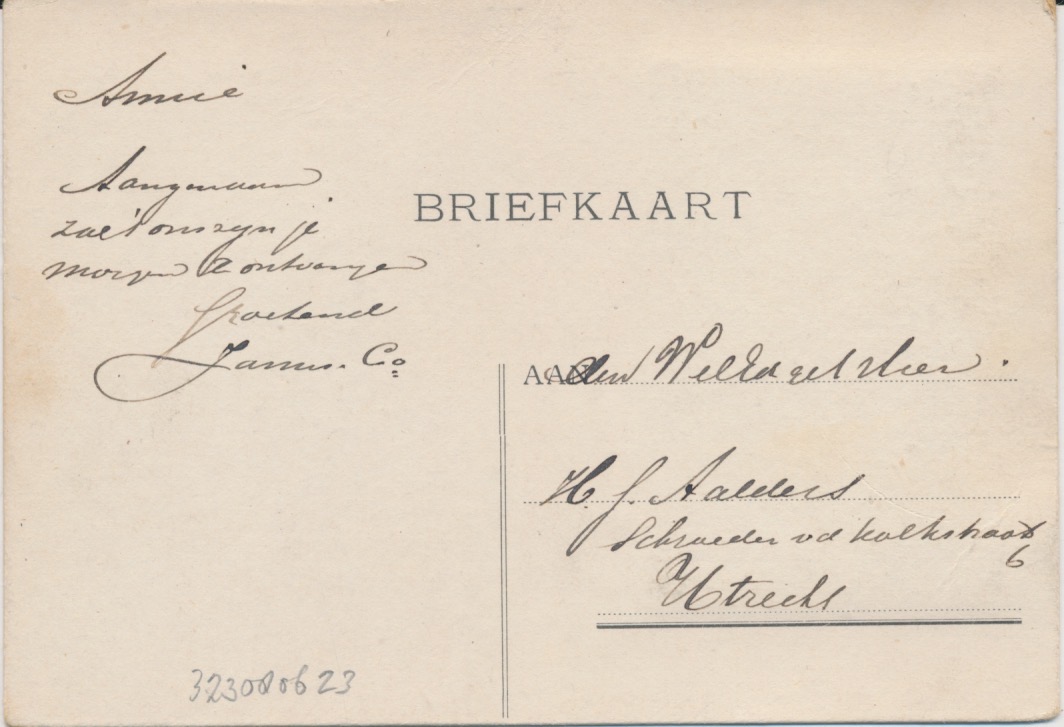 Annie
Aangenaam
zal 't ons zyn je
morgen te ontvangen
Groetend
James. Co
BRIEFKAART
AAN den WelEdgeb. Heer.
H. J. Aalders
Schroeder vd Kolkstraat
6
Utrecht
323080623